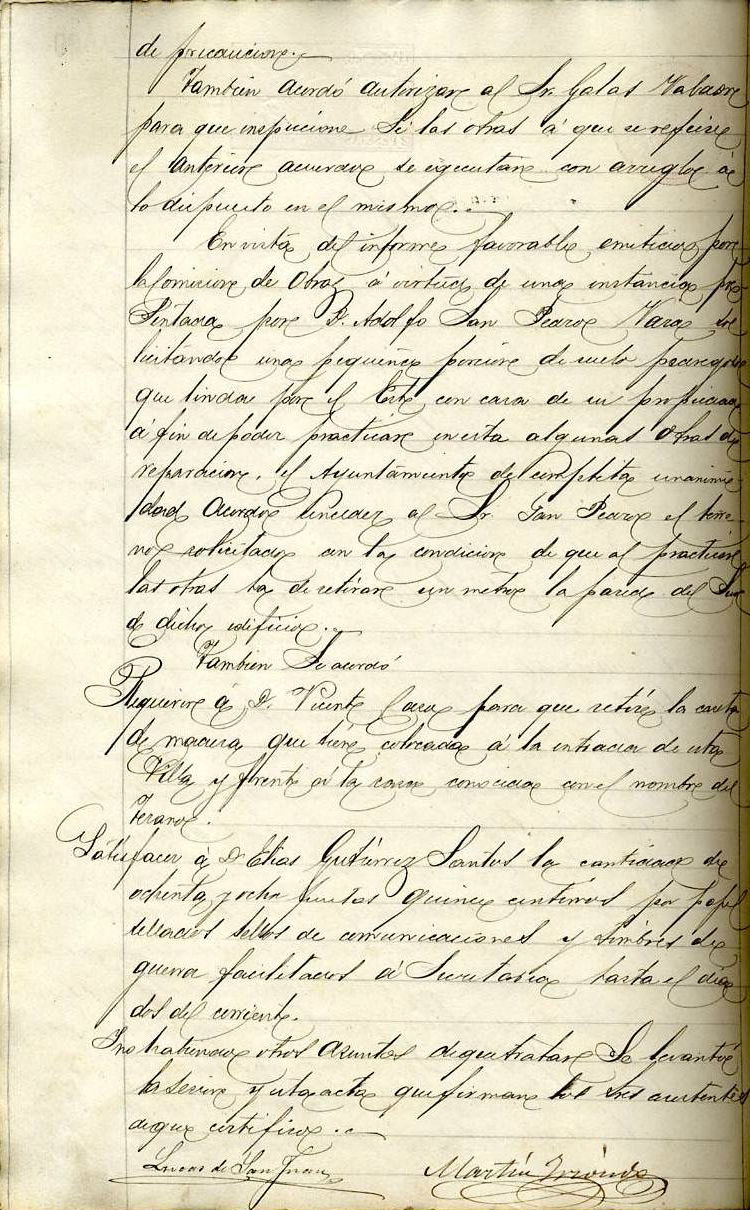 de precaucion.
Tambien acordó autorizar al Sr. Galas
para que inspeccione si las obras á que se refiere
el anterior acuerdo se egecutan con arreglo á
lo dispuesto en el mismo.
En vista del informe favorable emitido por
la Comision de Obras á virtud de una instancia pre
sentada por D. Adolfo San Pedro Vara so
licitando una pequeña porcion de suelo
que linda por el Este con casa de su propiedad
á fin de poder practicar en esta algunas obras de
reparacion, el Ayuntamiento de completa unanimi
dad acordó conceder al Sr. San Pedro el terre
no solicitado con la condicion de que al practicar
las obras ha de retirar un metro la pared del Sur
de dicho edificio.
Tambien se acordó
Requerir á D. Vicente para que retire la caseta
de madera que tiene colocada á la entrada de esta
Villa y frente a la casa conocida con el nombre del
Satisfacer á D. Elias Gutiérrez Santos la cantidad de
ochenta y ocho pesetas quince centimos por papel
sellado sellos de comunicaciones y timbres de
guerra facilitados á Secretaria hasta el dia
dos del corriente.
Y no habiendo otros asuntos de que tratar se levantó
la sesion y esta acta que firman los Sres asistentes
de que certifico.
Lucas de San Juan Martin